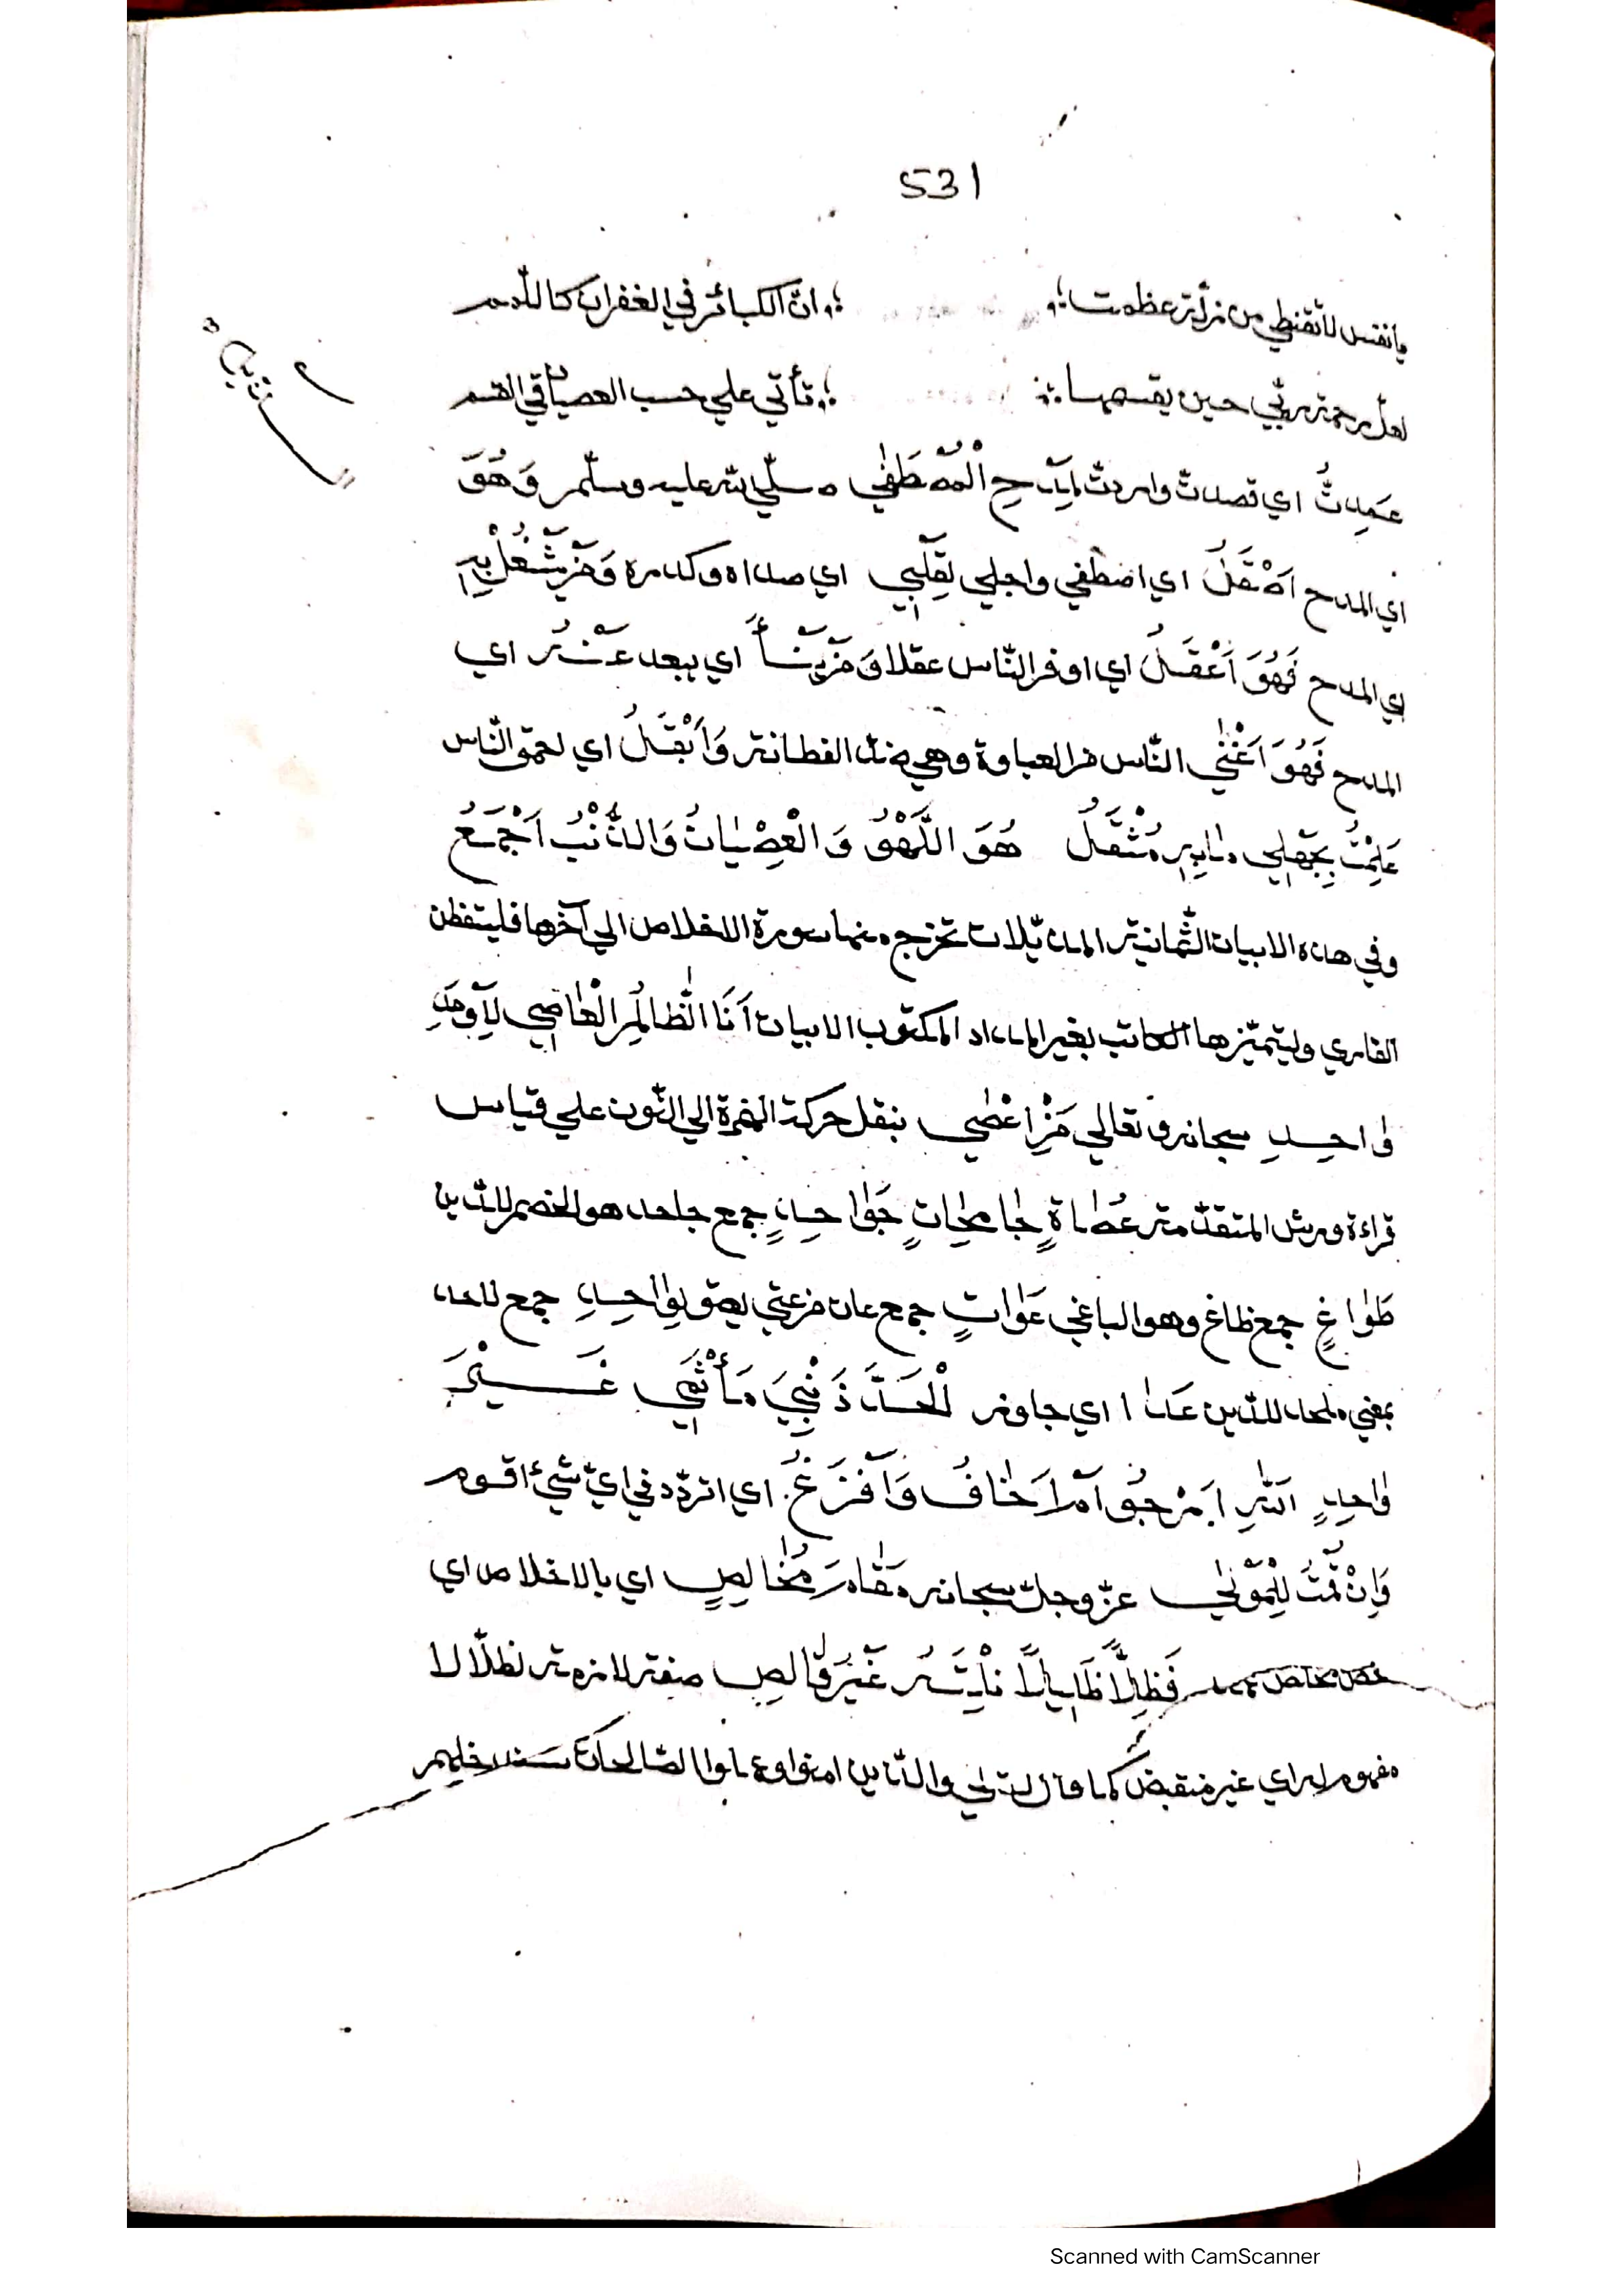 531
يانفس لا تقنطي من زلة عظمت ؛ ؛ ان الكبائر في الغفران كاللمم
لعل رحمة ربي حين يقسمها ؛ ؛ تأتي علي حسب العصيان في القسم
عَمِدتُ اي قصدت واردت لِمَدْحِ الْمُصْطَفٰي صلي الله عليه وسلم وَهُوَ
اي المدح اَصْقَلُ اي اصفي واجلي لِقَلْبِي اي صداه وكدره وَمَنْ يَشْغُلْ بِهِ
اي المدح فَهُوَ اَعْقَلُ اي اوفر الناس عقلا وَمَنْ يَنْأَ اي يبعد عَنْهُ اي
المدح فَهُوَ اَغْبٰي الناس من الغباوة وهي ضد الفطانة وَاَبْقَلُ اي احمق الناس
عَلِمْتُ بِجَهْلِي مَا بِهِ مُثْقَلُ هُوَ اللَّهْوُ وَ الْعِصْيَانُ وَالذَّنْبُ اَجْمَعُ
وفي هذه الابيات الثمانية المذيلات تخرج منها سورة الاخلاص الي آخرها فليتفطن
القاري وليتميزها الكاتب بغير المداد المكتوب الابيات اَنَا الظَّالِمُ الْعَاصِي لِاَوْحَدِ
وٰاحِدِ سبحانه وتعالي مَنِ اعْصٰي بنقل حركة الهمزة الي النون علي قياس
قراءة ورش المتقدمة عُصَاةٍ جَامِحَاتٍ جَوَاحِدِ جمع جاحد هو الخصم للدين
طَوَاغٍ جمع طاغ وهو الباغي عَوَاتٍ جمع عات من عتي يعتو لَوَاحِدِ جمع لاحد
بمعني ملحد للدين عَدَا اي جاوز الْحَدَّ ذَنْبِي مَأْثَمِي غَيْرَ
وٰاحِدٍ اللهِ اَرْجُو اَمْ اَخَافُ وَاَفْزَعُ اي اتردد في اي شيئ اقوم
وَاِنْ قُمْتُ لِلْمَوْلٰي عز وجل سبحانه مَقَامَ مُخَالِصٍ اي بالاخلاص اي
فَظِلًّا ظَلِيلًا غَيْرَ قٰالِصِ صفة لازمة لظلا لا
مفهوم له اي غير منقبض كما قال تعالي والذين امنوا وعملوا الصالحات سندخلهم
Scanned with CamScanner